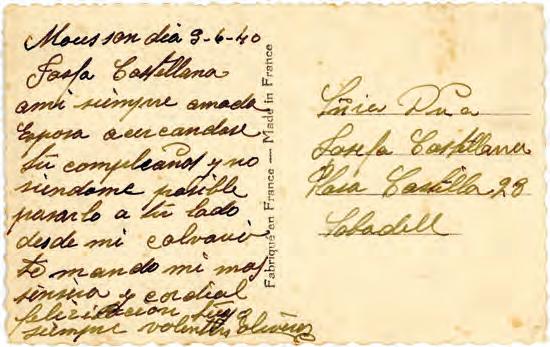 Mousson dia 3-6-40
Josefa Castellana
ami siempre amada
Esposa acercandose
tu compleaños y no
siendome posible
pasarlo a tu lado
desde mi calvario
te mando mi mas
sincera y cordial
felicitacion tuyo
siempre valentin Oliveras
Fabriqué en France — Made in France
Josefa Castellana
Plasa Castilla 28
Sabadell